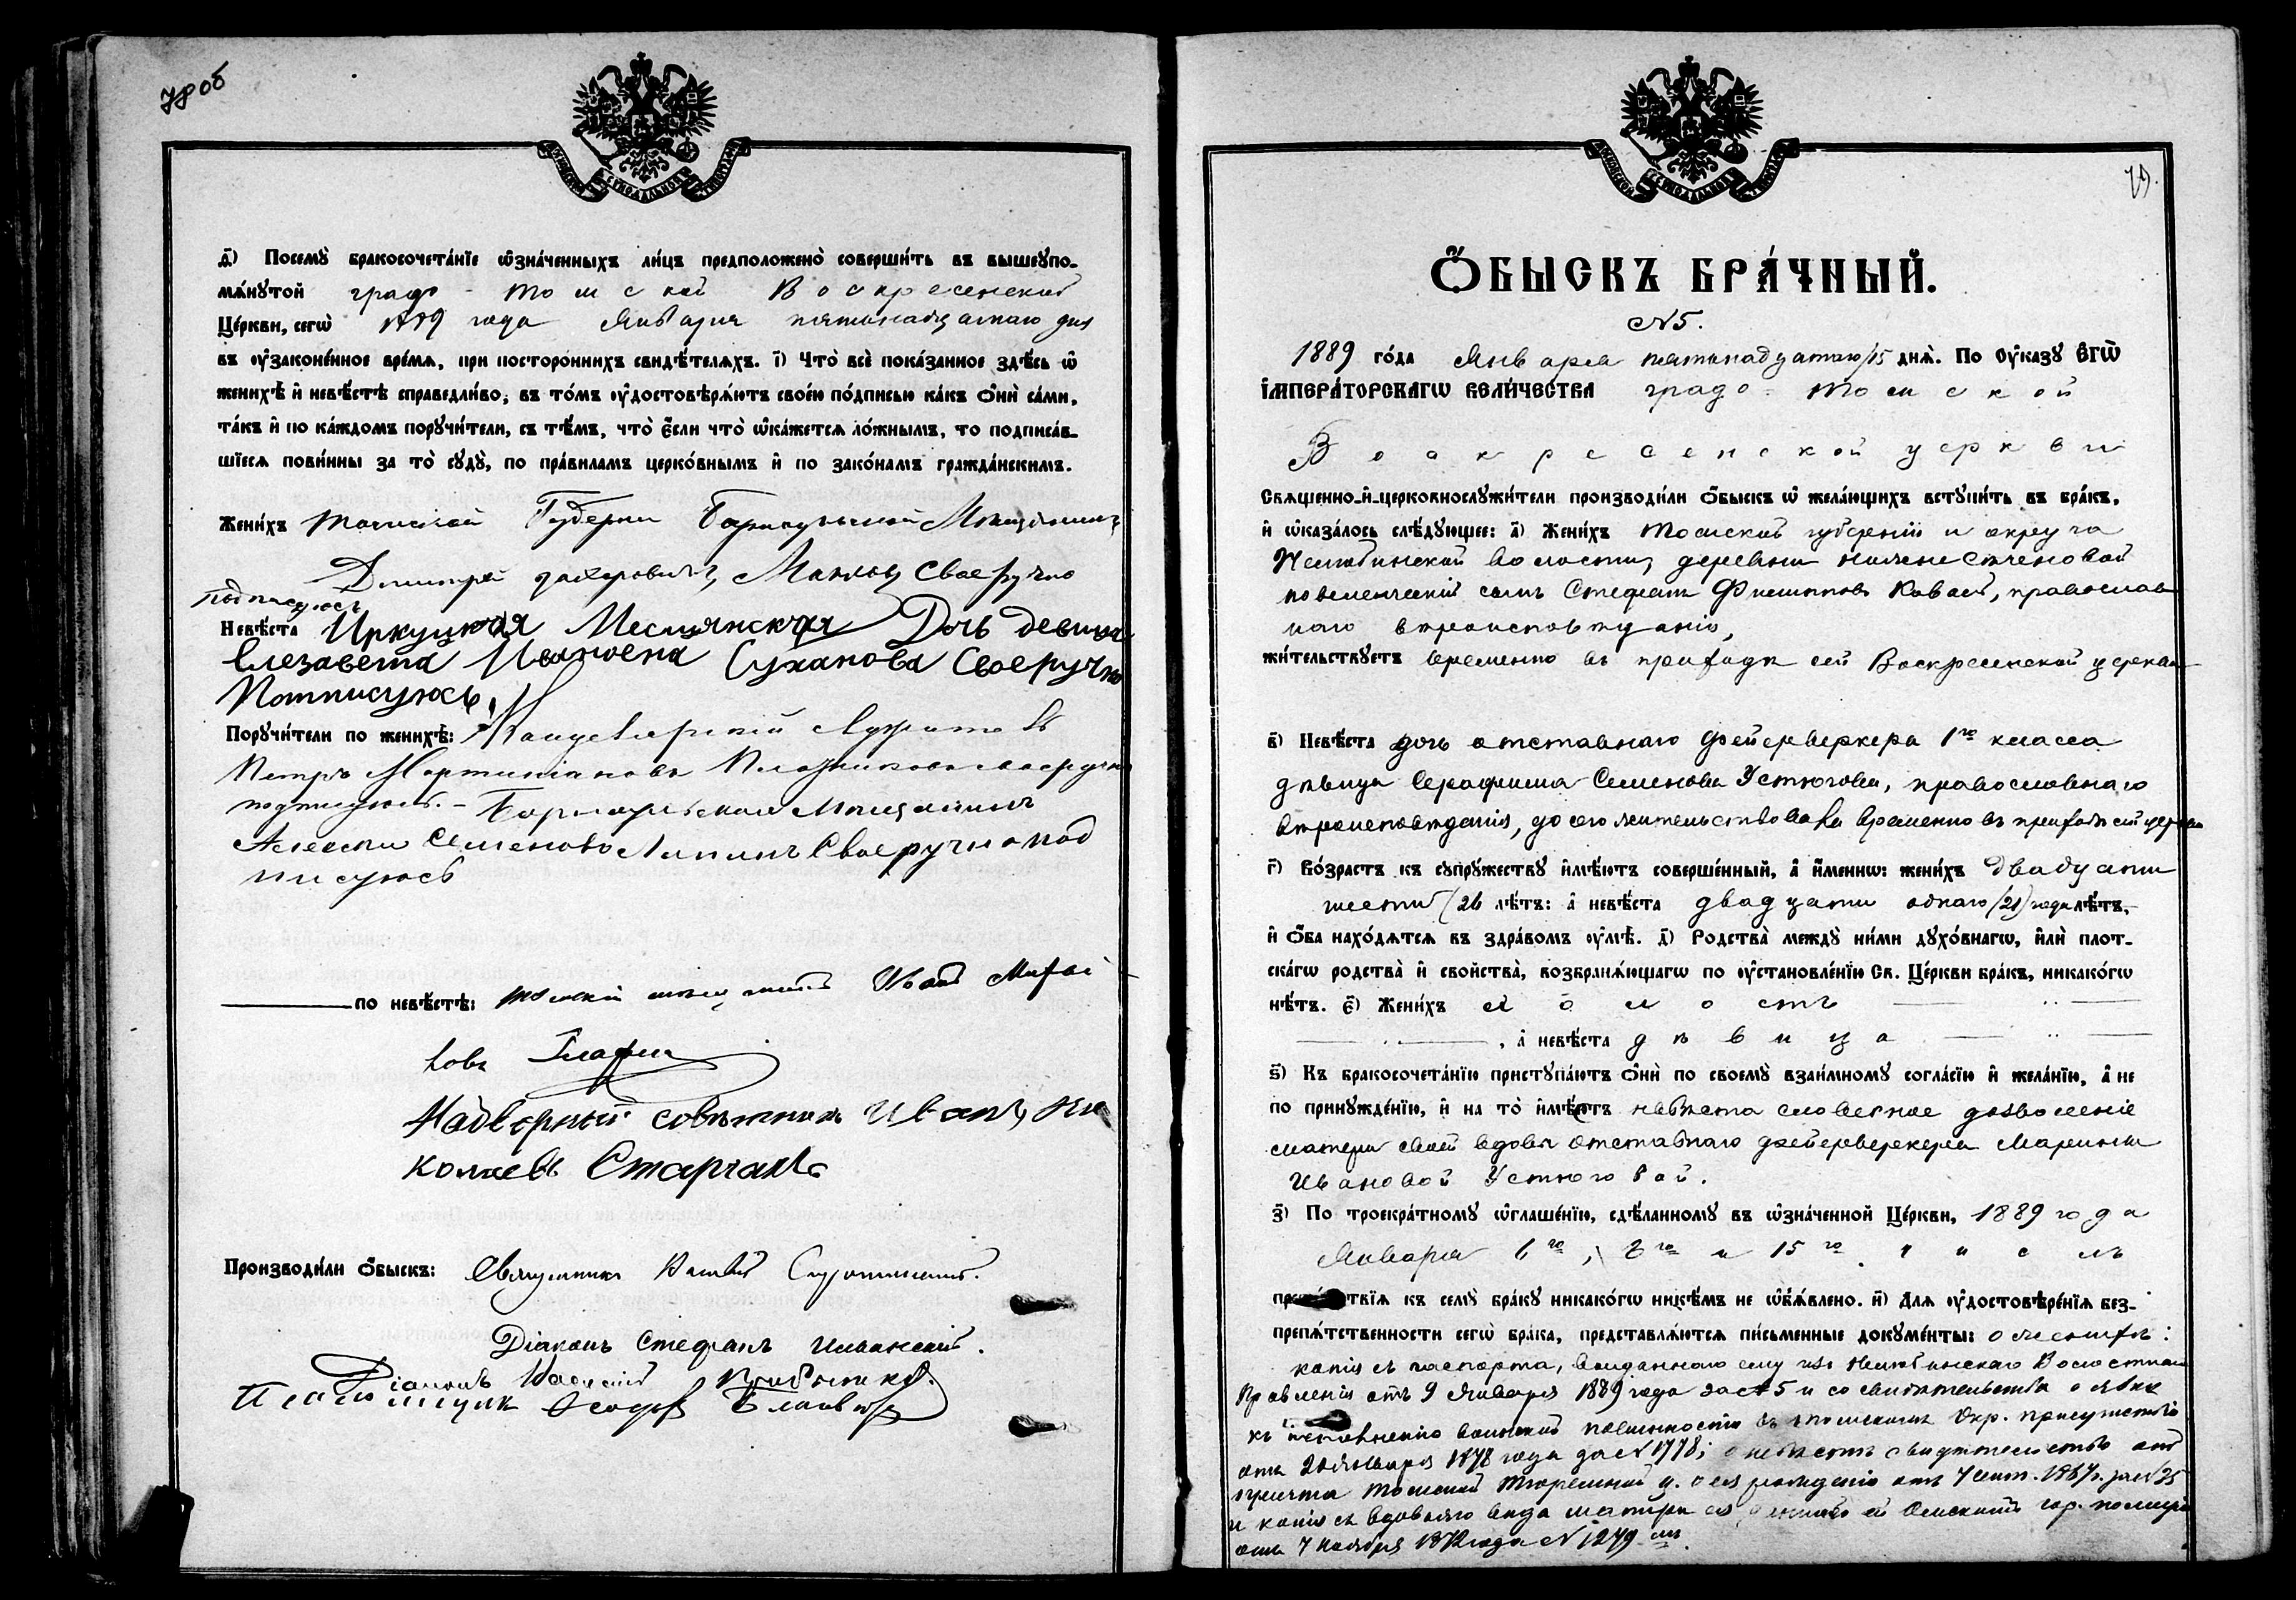 78 об
СѴНОДАЛЬНОЙ
д҃) Посемꙋ̀ бракосочета́нїе ѡ҆зна́ченныхъ ли́цъ предположено̀ соверши́ть въ вышеꙋпо-
мѧ́нꙋтой градо-Томской Воскресенской
Це́ркви, сегѡ̀ 1889 года Января пятнадцатаго дня
въ ᲂу҆законе́нное вре́мѧ, при посторо́ннихъ свидѣ́телѧхъ. і҃) Что̀ всѐ пока́занное здѣ́сь ѡ҆
женихѣ̀ и҆ невѣ́стѣ справедли́во, въ то́мъ ᲂу҆достовѣрѧ́ютъ свое́ю по́дписью ка́къ ѻ҆нѝ са́ми,
та́къ и҆ по ка́ждомъ порꙋчи́тели, съ тѣ́мъ, что̀ є҆́сли что̀ ѡ҆ка́жетсѧ ло́жнымъ, то подписа́в-
шїесѧ пови́нны за то̀ сꙋдꙋ̀, по пра́виламъ церко́внымъ и҆ по зако́намъ гражда́нскимъ.
Жени́хъ Томской Губернии Барнаульской Мещанинъ
Дмитрей Захаровичъ Своеручно
подписуюсь
Невѣ́ста Иркуцкая Месщянская Дочь девица
Елезавета Ивановна Суханова Своеручно
Потписуюсь
Порꙋчи́тели по женихѣ̀:
Петръ Мартиніановъ Плотниковъ своеручно
подписуюсь. – Барнаульской Мещанинъ
Алексей Семеновъ Лапинъ Своеручно под
писуюсь
по невѣ́стѣ: Томскій мещанинъ Иванъ Михай
ловъ
Надворный совѣтникъ Иванъ Ни
колаевъ
Производи́ли ѻ҆́быскъ: Священникъ Сиротинскій.
Діаконъ Стефанъ Ильинскій.
Діаконъ Василій
Псаломщикъ
79.
СѴНОДАЛЬНОЙ
Ѻ҆́БЫСКЪ БРА́ЧНЫЙ.
№ 5.
1889 го́да Января пятнадцатаго/15 днѧ̀. По Оу҆казꙋ Є҆ГѠ̀
І҆МПЕРА́ТОРСКАГѠ ВЕЛИ́ЧЕСТВА градо-Томской
Воскресенской церкви
Свѧщенно-и҆-церковнослꙋжи́тели производи́ли ѻ҆́быскъ ѡ҆ жела́ющихъ встꙋпи́ть въ бра́къ,
и҆ ѡ҆каза́лось слѣ́дꙋющее: а҃) Жени́хъ Томской губерніи и округа
Нелюбинской волости, деревни
сынъ Стефанъ Филиповъ православ
наго вѣроисповѣданія,
жи́тельствꙋетъ временно въ приходѣ сей Воскресенской церкви
в҃) Невѣ́ста дочь отставнаго фейерверкера 1го класса
дѣвица Серафима Семенова Устюгова, православнаго
вѣроисповѣданія, до сего жительствовала временно въ приходѣ сей церкви
г҃) Во́зрастъ къ сꙋпрꙋ́жествꙋ и҆мѣ́ютъ соверше́нный, а҆ и҆́меннѡ: жени́хъ двадцати
шести (26 лѣ́тъ: а҆ невѣ́ста двадцати однаго (21) года лѣ́тъ,
и҆ ѻ҆́ба нахо́дѧтсѧ въ здра́вомъ ᲂу҆мѣ̀. д҃) Родства̀ междꙋ̀ ни́ми дꙋхо́внагѡ, и҆лѝ плот-
ска́гѡ родства̀ и҆ свойства̀, возбранѧ́ющагѡ по ᲂу҆становле́нїю Св. Це́ркви бра́къ, никако́гѡ
нѣ́тъ. є҃) Жени́хъ холостъ
, а҆ невѣ́ста дѣвица
ѕ҃) Къ бракосочета́нїю пристꙋпа́ютъ ѻ҆нѝ по своемꙋ̀ взаи́мномꙋ согла́сїю и҆ жела́нїю, а҆ не
по принꙋжде́нїю, и҆ на то̀ и҆мѣ́етъ невѣста словесное дозволеніе
матери своей вдовы отставнаго фейерверкера
Ивановой Устюговой.
з҃) По троекра́тномꙋ ѡ҆глаше́нїю, сдѣ́ланномꙋ въ ѡ҆зна́ченной Це́ркви, 1889 года
Января 6го, 8го и 15го чиселъ
препѧ́тствїѧ къ семꙋ̀ бра́кꙋ никако́гѡ никѣ́мъ не ѡ҆б̾ѧ́влено. и҃) Длѧ ᲂу҆достовѣре́нїѧ без-
препѧ́тственности сегѡ̀ бра́ка, представлѧ́ютсѧ пи́сьменные докꙋме́нты: о женихѣ:
копія съ паспорта, выданнаго ему изъ Нелюбинскаго Волостнаго
Правленія отъ 9 Января 1889 года за № 5 и со свидѣтельства о явкѣ
къ исполненію воинской повинности въ Томскомъ Окр. присутствіи
отъ года за № 1778; о невѣстѣ свидѣтельство отъ
причта Томской Тюремной ц. о ея рожденіи отъ 7 сент. 1867 г. за № 25
и копія съ вдовьяго вида матери ея гор. полиціи
отъ 7 Ноября 1872 года № 1279